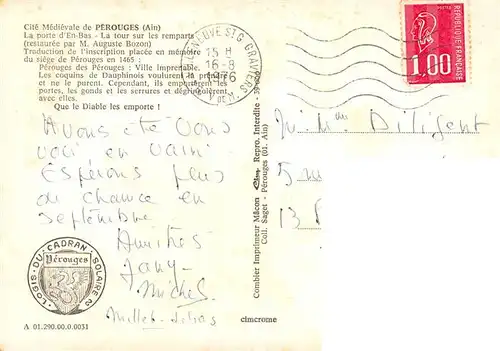 Cité Médiévale de PÉROUGES (Ain)
La porte d'En-Bas - La tour sur les remparts
(restaurée par M. Auguste Bozon)
Traduction de l'inscription placée en mémoire
du siège de Pérouges en 1465 :
Pérouges des Pérouges : Ville Imprenable.
Les coquins de Dauphinois voulurent la prendre
et ne le purent. Cependant, ils emportèrent les
portes, les gonds et les serrures et dégringolèrent
avec elles.
Que le Diable les emporte !
VILLENEUVE ST G
15 H
16-8
1976
1.00
Avons été vous
voir, en vain.
Espérons plus
de chance en
septembre
Amitiés
Jany
Michel
LOGIS · DU · CADRAN · SOLAIRE
Pérouges
A 01.290.00.0.0031
Combier Imprimeur Mâcon Repro. Interdite
Coll. Saget - Pérouges (01. Ain)
cimcrome
Diligent
5
13